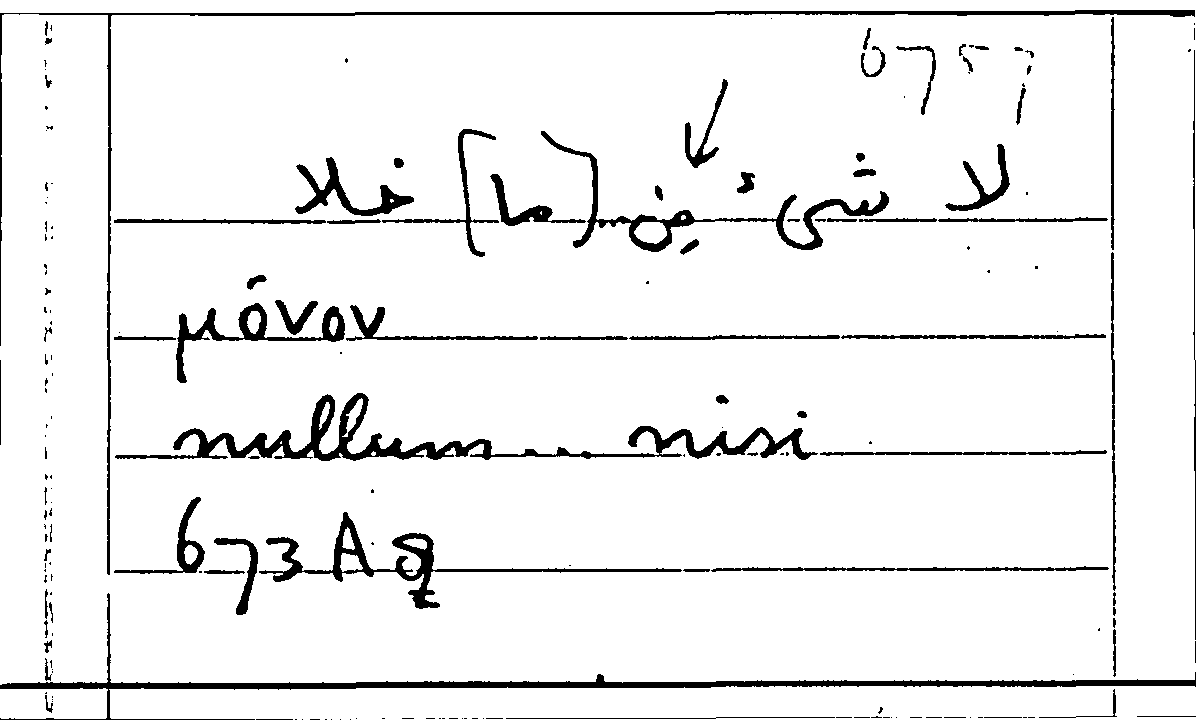 6757
لا شىء مِن...[ما] خلا
μόνον
nullum... nisi
673A